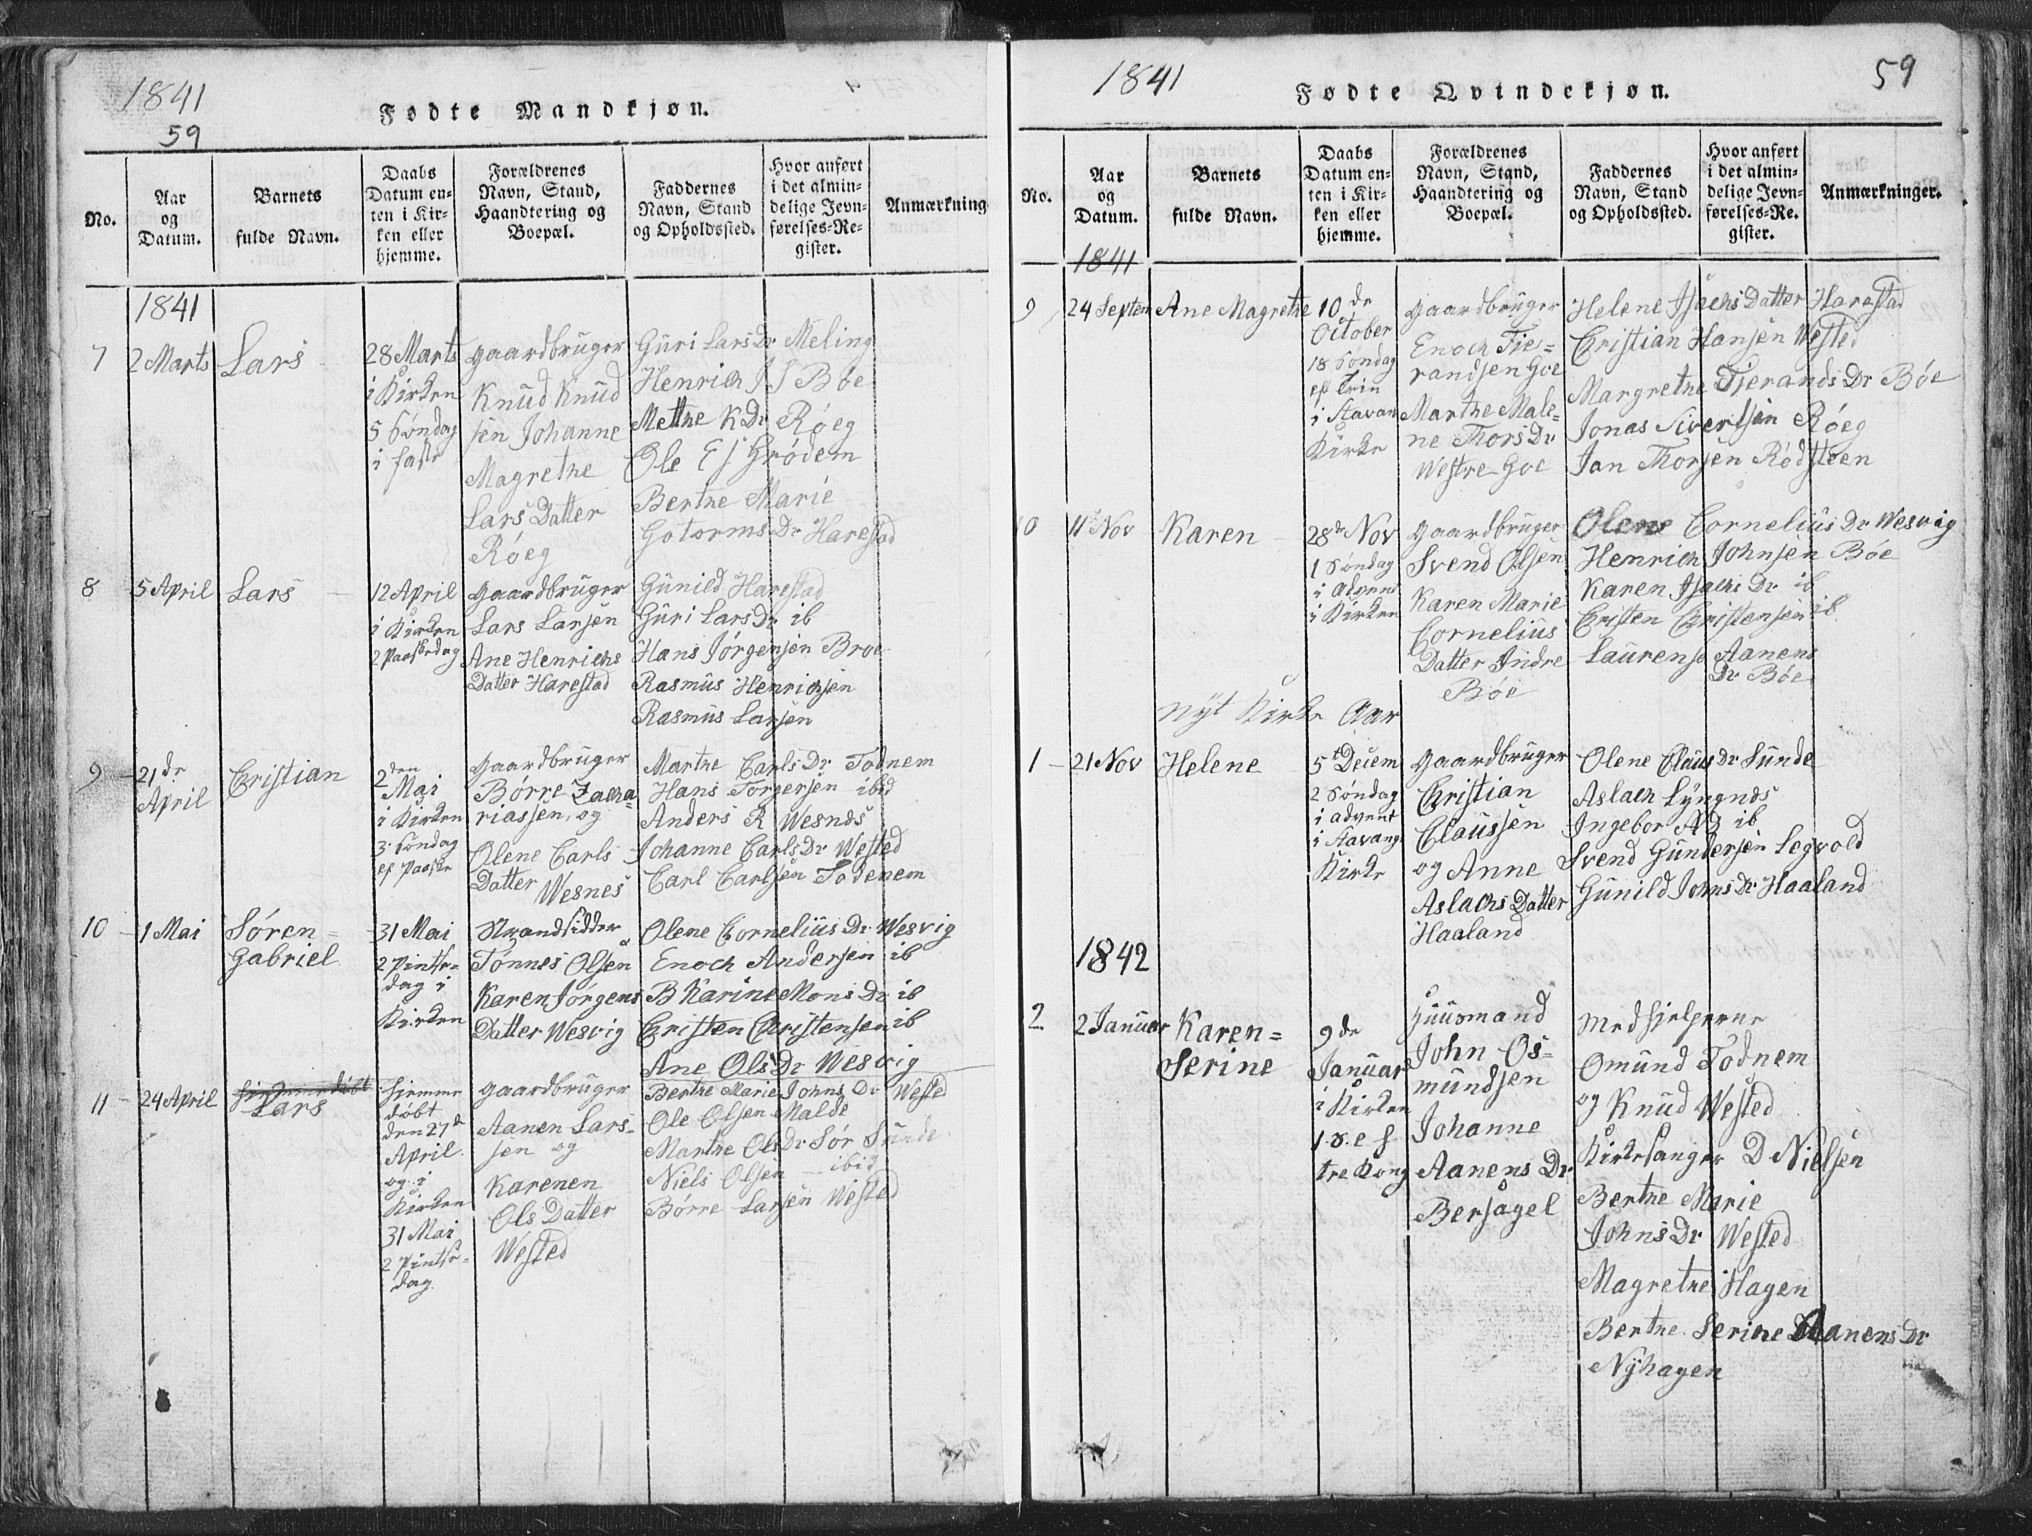 1841
59
Fødte Mandkjøn.
No.
Aar og Datum.
Barnets fulde Navn.
Daabs Datum enten i Kirken eller hjemme.
Forældrenes Navn, Stand, Haandtering og Boepæl.
Faddernes Navn, Stand og Opholdssted.
Hvor anført i det almindelige Jevnførelses-Register.
Anmærkning
1841
7
2 Marts
Lars
28 Marts
i Kirken
5 Søndag
i faste
gaardbruger
Knud Knud
sen Johanne
Magrethe
Lars Datter
Røeg
Guri Lars Dr Meling
Henrich J S Bøe
Methe K Dr Røeg
Ole E S Grødem
Berthe Marie
Gotorms Dr Harestad
8
5 April
Lars
12 April
i Kirken
2 Paaskedag
gaardbruger
Lars Larsen
Ane Henrichs
Datter Harestad
Gunild Harestad
Guri Lars Dr ib
Hans Jørgensen Broe
Rasmus Henrichsen
Rasmus Larsen
9
21de
April
Christian
2den
Mai
i Kirken
3 Søndag
ef Paaske
gaardbruger
Børre Zacha-
riassen, og
Olene Carls
Datter
Wesnes
Marthe Carls Dr Todnem
Hans Torgersen ibid
Anders R Wesnes
Johanne Carls Dr Wested
Carl Carlsen Todenem
10
1 Mai
Søren=
Gabriel
31 Mai
2 Pintse-
dag i
Kirken
Strandsidder
Tønnes Olsen
Karen Jørgens
Datter Wesvig
Olene Cornelius Dr Wesvig
Enoch Andersen ib
B Karine Mons Dr ib
Christen Christensen ib
Ane Ols Dr Wesvig
11
24 April
hiemmedøbt
Lars
hiemme
døbt
den 27d
April.
og i
Kirken
31 Mai
2 Pintse-
dag
gaardbruger
Aanen Lars-
sen og
Karenen
Ols Datter
Wested
Berthe Marie Johns Dr Wested
Ole Olsen Malde
Marthe Ols Dr Sør Sunde
Niels Olsen - ibid
Børre Larsen Wested
1841
59
Fødte Qvindekjøn.
No.
Aar og Datum.
Barnets fulde Navn.
Daabs Datum enten i Kirken eller hjemme.
Forældrenes Navn, Stand, Haandtering og Boepæl.
Faddernes Navn, Stand og Opholdssted.
Hvor anført i det almindelige Jevnførelses-Register.
Anmærkninger.
1841
9
24 Septem
Ane Magrethe
10de
October
18 Søndag
ef Trin
i Stavan
Kirke
gaardbruger
Enoch Tie=
randsen Goe
Marthe Male=
ne Thors Dr
Westre Goe
Helene Isachs Datter Harestad
Christian Hansen Wested
Margrethe Tjerands Dr Bøe
Jonas Sivertsen Røeg
Jan Thorsen Rødstøen
10
11t Nov
Karen
28de Nov
1 Søndag
i advent
i Kirken
gaardbruger
Svend Olsen
Karen Marie
Cornelius
Datter Indre
Bøe
Olene Cornelius Dr Wesvig
Henrich Johnsen Bøe
Karen Isachs Dr ib
Christen Christensen ib
Laurense Aanens
Dr Bøe
Nyt Kirke Aar
1
21 Nov
Helene
5t Decem
2 Søndag
i advent
i Stavang
Kirke
gaardbruger
Christian
Claussen
og Anne
Aslachs Datter
Haaland
Olene Claus Dr Sunde
Aslach Lyngnes
Ingebor A D ib
Svend Gundersen Legvold
Gunild Johns Dr Haaland
1842
2
2 Januar
Karen=
Serine
9de
Januar
i Kirken
1 S. e f
tre Kong
Huusmand
John Os=
mundsen
Johanne
Aanens Dr
Bersagel
Medhjelperne
Omund Todnem
og Knud Wested
Kirkesanger D Nielsen
Berthe Marie
Johns Dr Wested
Magrethe Hagen
Berthe Serine Aanens Dr
Nyhagen